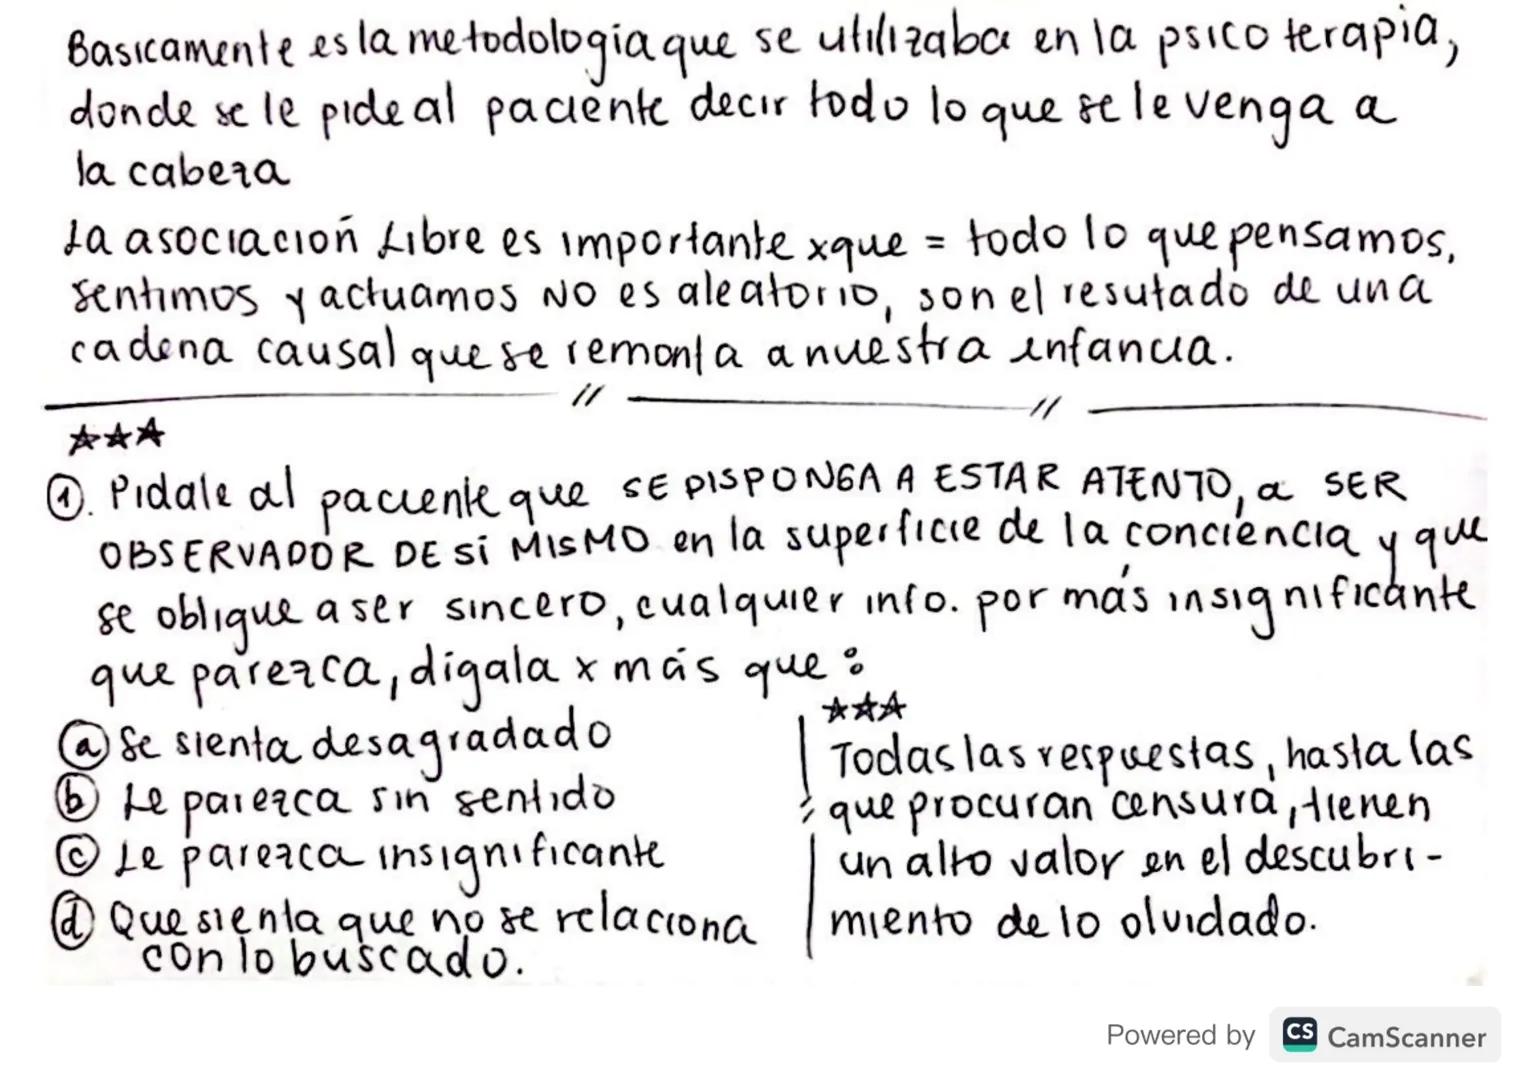 Basicamente es la metodologia que se utilizaba en la psico terapia,
donde se le pide al paciente decir todo lo que se le venga a
la cabeza
La asociación Libre es importante xque = todo lo que pensamos,
sentimos y actuamos NO es aleatorio, son el resutado de una
cadena causal que se remonta a nuestra infancia.
★★★
① Pidale al paciente que SE DISPONGA A ESTAR ATENTO, a SER
OBSERVADOR DE SÍ MISMO en la superficie de la conciencia y que
se obligue a ser sincero, cualquier info. por más insignificante
que parezca, digala x más que:
ⓐ Se sienta desagradado
ⓑ Le parezca sin sentido
ⓒ Le parezca insignificante
ⓓ Que sienta que no se relaciona
con lo buscado.
★★★
Todas las respuestas, hasta las
que procuran censura, tienen
un alto valor en el descubri-
miento de lo olvidado.
Powered by CS CamScanner